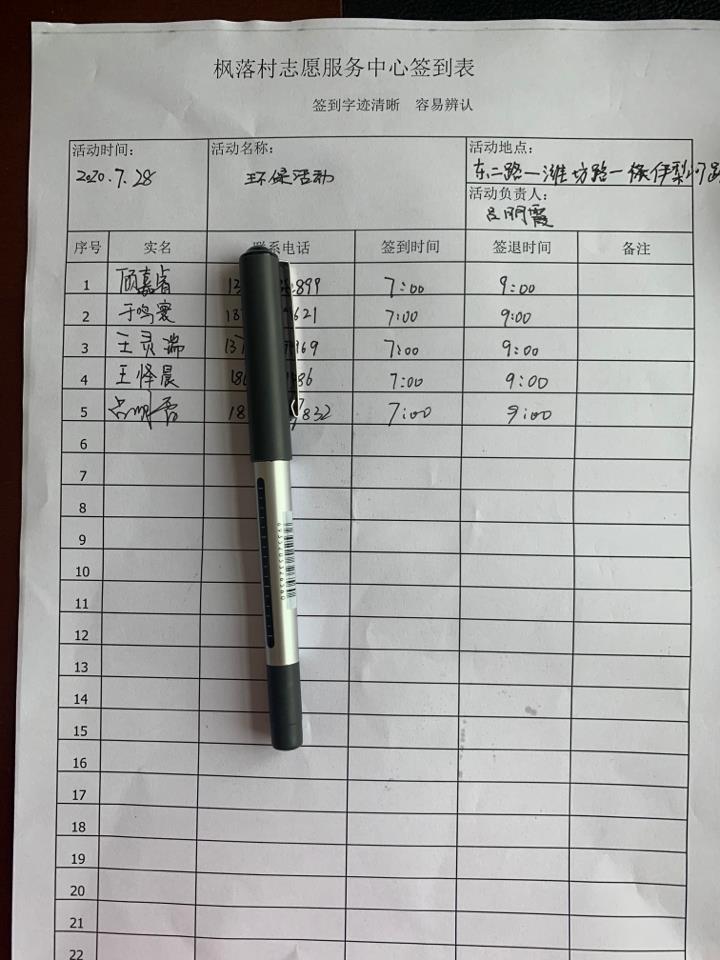 枫落村志愿服务中心签到表
签到字迹清晰 容易辨认
活动时间: 活动名称: 活动地点:
2020.7.28 环保活动 东二路一潍坊路一
活动负责人:
吕明霞
序号 实名 联系电话 签到时间 签退时间 备注
1 899 7:00 9:00
2 于鸣寰 621 7:00 9:00
3 王灵瑞 969 7:00 9:00
4 王怿晨 186 86 7:00 9:00
5 18 7832 7:00 9:00
6
7
8
9
10
11
12
13
14
15
16
17
18
19
20
21
22